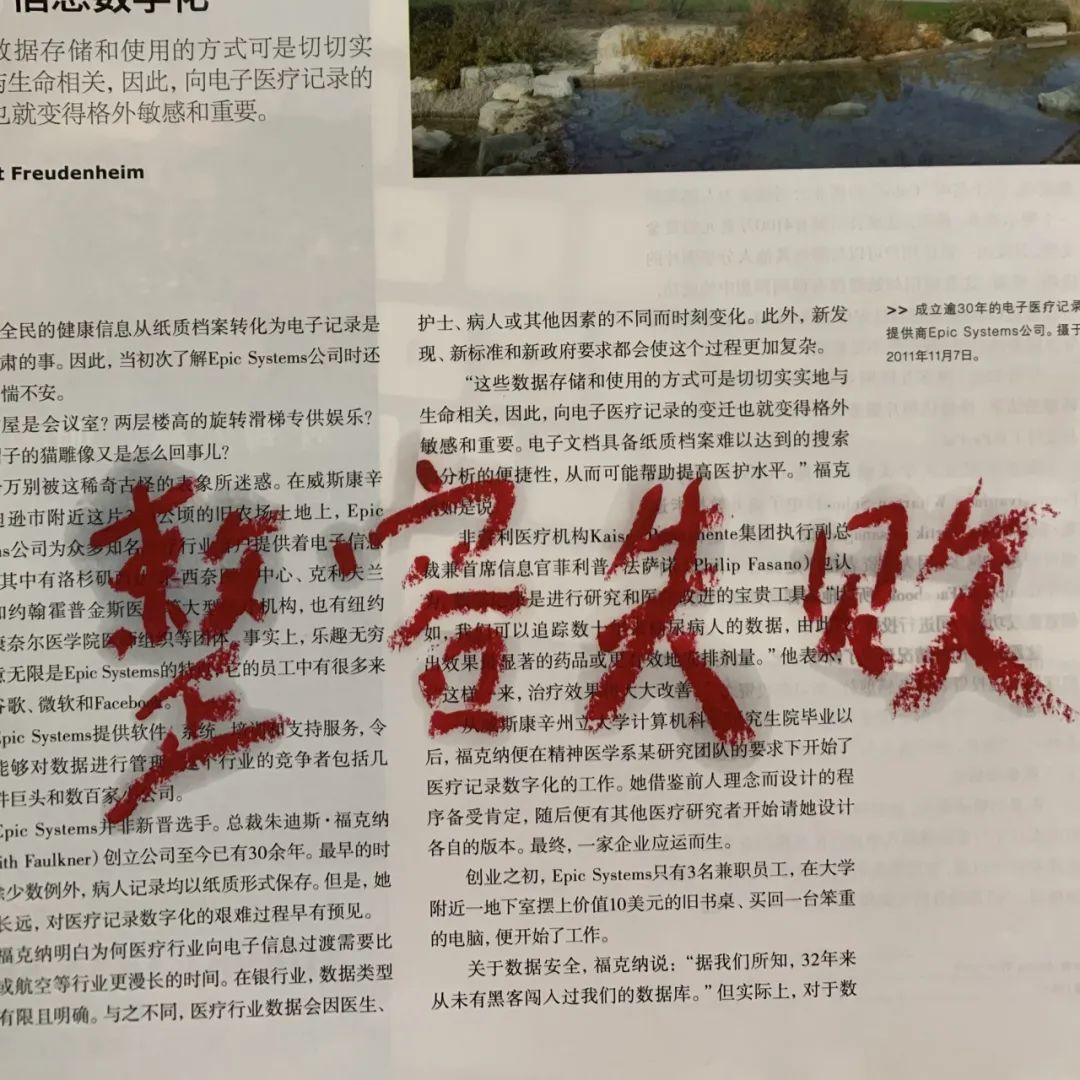 信息数字化
数据存储和使用的方式可是切切实
与生命相关，因此，向电子医疗记录的
也就变得格外敏感和重要。
t Freudenheim
全民的健康信息从纸质档案转化为电子记录是
肃的事。因此，当初次了解Epic Systems公司时还
惴不安。
屋是会议室？两层楼高的旋转滑梯专供娱乐？
子的猫雕像又是怎么回事儿？
万别被这稀奇古怪的表象所迷惑。在威斯康辛
迪逊市附近这片 公顷的旧农场土地上，Epic
ms公司为众多知名 疗行业 户提供着电子信息
其中有洛杉矶 -西奈 中心、克利夫兰
和约翰霍普金斯医 等大型 机构，也有纽约
康奈尔医学院医师组织等团体。事实上，乐趣无穷
意无限是Epic Systems的特 它的员工中有很多来
谷歌、微软和Facebook。
Epic Systems提供软件、系统、培训和支持服务，令
能够对数据进行管理。这个行业的竞争者包括几
件巨头和数百家小公司。
Epic Systems并非新晋选手。总裁朱迪斯·福克纳
ith Faulkner）创立公司至今已有30余年。最早的时
除少数例外，病人记录均以纸质形式保存。但是，她
长远，对医疗记录数字化的艰难过程早有预见。
福克纳明白为何医疗行业向电子信息过渡需要比
或航空等行业更漫长的时间。在银行业，数据类型
有限且明确。与之不同，医疗行业数据会因医生、
护士、病人或其他因素的不同而时刻变化。此外，新发
现、新标准和新政府要求都会使这个过程更加复杂。
“这些数据存储和使用的方式可是切切实实地与
生命相关，因此，向电子医疗记录的变迁也就变得格外
敏感和重要。电子文档具备纸质档案难以达到的搜索
分析的便捷性，从而可能帮助提高医护水平。”福克
如是说
非营利医疗机构Kaiser Permanente集团执行副总
裁兼首席信息官菲利普·法萨诺（Philip Fasano）也认
是进行研究和医 改进的宝贵工具
如，我们可以追踪数十 糖尿病人的数据，由此
出效果最显著的药品或更有效地安排剂量。”他表示，
这样一来，治疗效果将大大改善。
从威斯康辛州立大学计算机科 研究生院毕业以
后，福克纳便在精神医学系某研究团队的要求下开始了
医疗记录数字化的工作。她借鉴前人理念而设计的程
序备受肯定，随后便有其他医疗研究者开始请她设计
各自的版本。最终，一家企业应运而生。
创业之初，Epic Systems只有3名兼职员工，在大学
附近一地下室摆上价值10美元的旧书桌、买回一台笨重
的电脑，便开始了工作。
关于数据安全，福克纳说：“据我们所知，32年来
从未有黑客闯入过我们的数据库。”但实际上，对于数
>> 成立逾30年的电子医疗记录
提供商Epic Systems公司。摄于
2011年11月7日。
整容失败